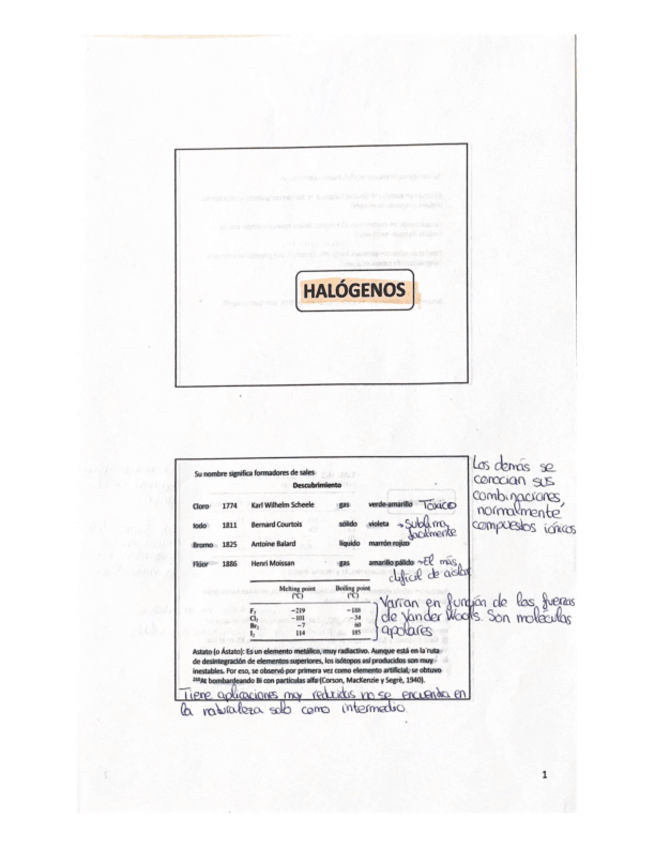 HALÓGENOS
Su nombre significa formadores de sales
Descubrimiento
Cloro 1774 Karl Wilhelm Scheele gas verde-amarillo Tóxico
Iodo 1811 Bernard Courtois sólido violeta → Sublima
facilmente
Bromo 1825 Antoine Balard líquido marrón rojizo
Flúor 1886 Henri Moissan gas amarillo pálido → El más
dificil de aislar
Los demás se
conocian sus
combinaciones,
normalmente
compuestos iónicos
Melting point Boiling point
(°C) (°C)
F₂ −219 −188
Cl₂ −101 −34
Br₂ −7 60
I₂ 114 185
Varían en función de las fuerzas
de Vander Waals. Son moléculas
apolares
Astato (o Ástato): Es un elemento metálico, muy radiactivo. Aunque está en la ruta
de desintegración de elementos superiores, los isótopos así producidos son muy
inestables. Por eso, se observó por primera vez como elemento artificial, se obtuvo
At bombardeando Bi con partículas alfa (Corson, MacKenzie y Segrè, 1940).
Tiene aplicaciones muy reducidas no se encuentra en
la naturaleza solo como intermedio.
1